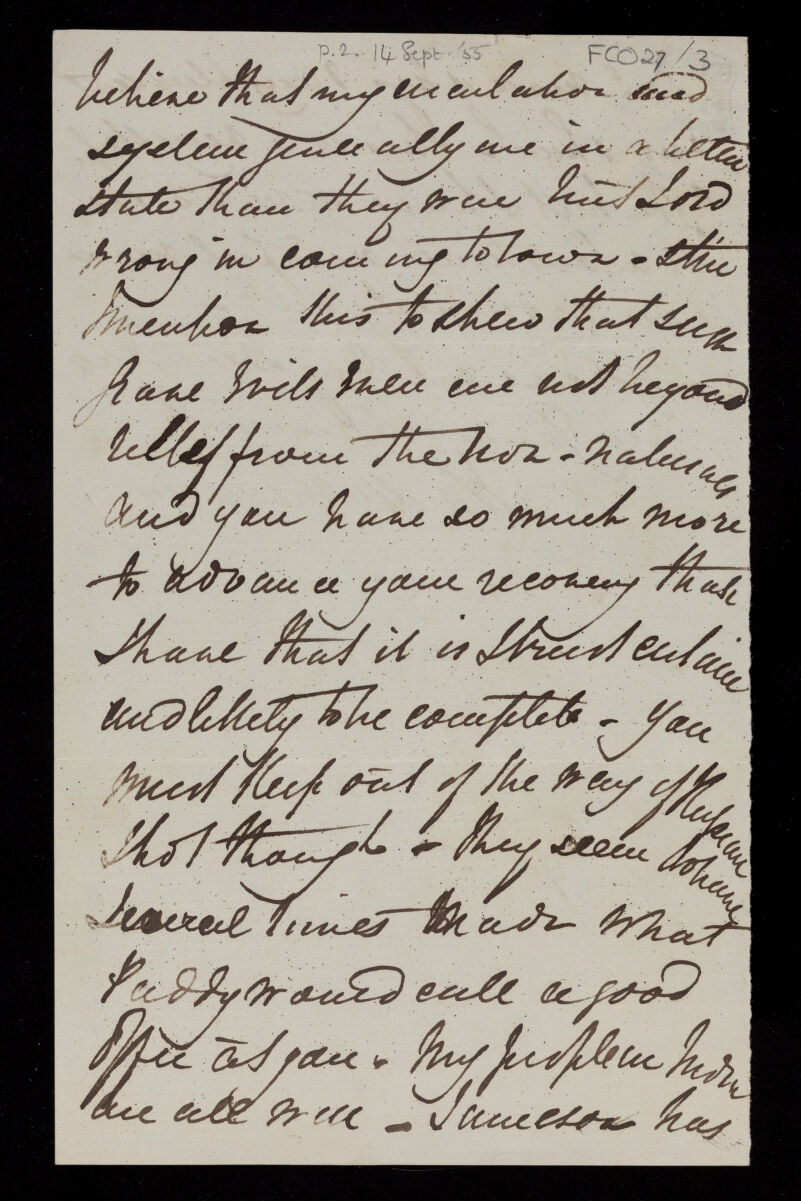 p.2. 14 Sept '55
FCO27/3
believe that my circulation and
system generally are in a better
state than they were but I did
wrong in coming to town - still
I mention this to shew that such
grave evils even are not beyond
relief from the non-naturals
and you have so much more
to advance your recovery than
I have that it is I trust certain
and likely to be complete - you
must keep out of the way of Russian
shot though - they seem to have
several times made what
Paddy would call a good
offer at you. My people in
are all well - Jameson has